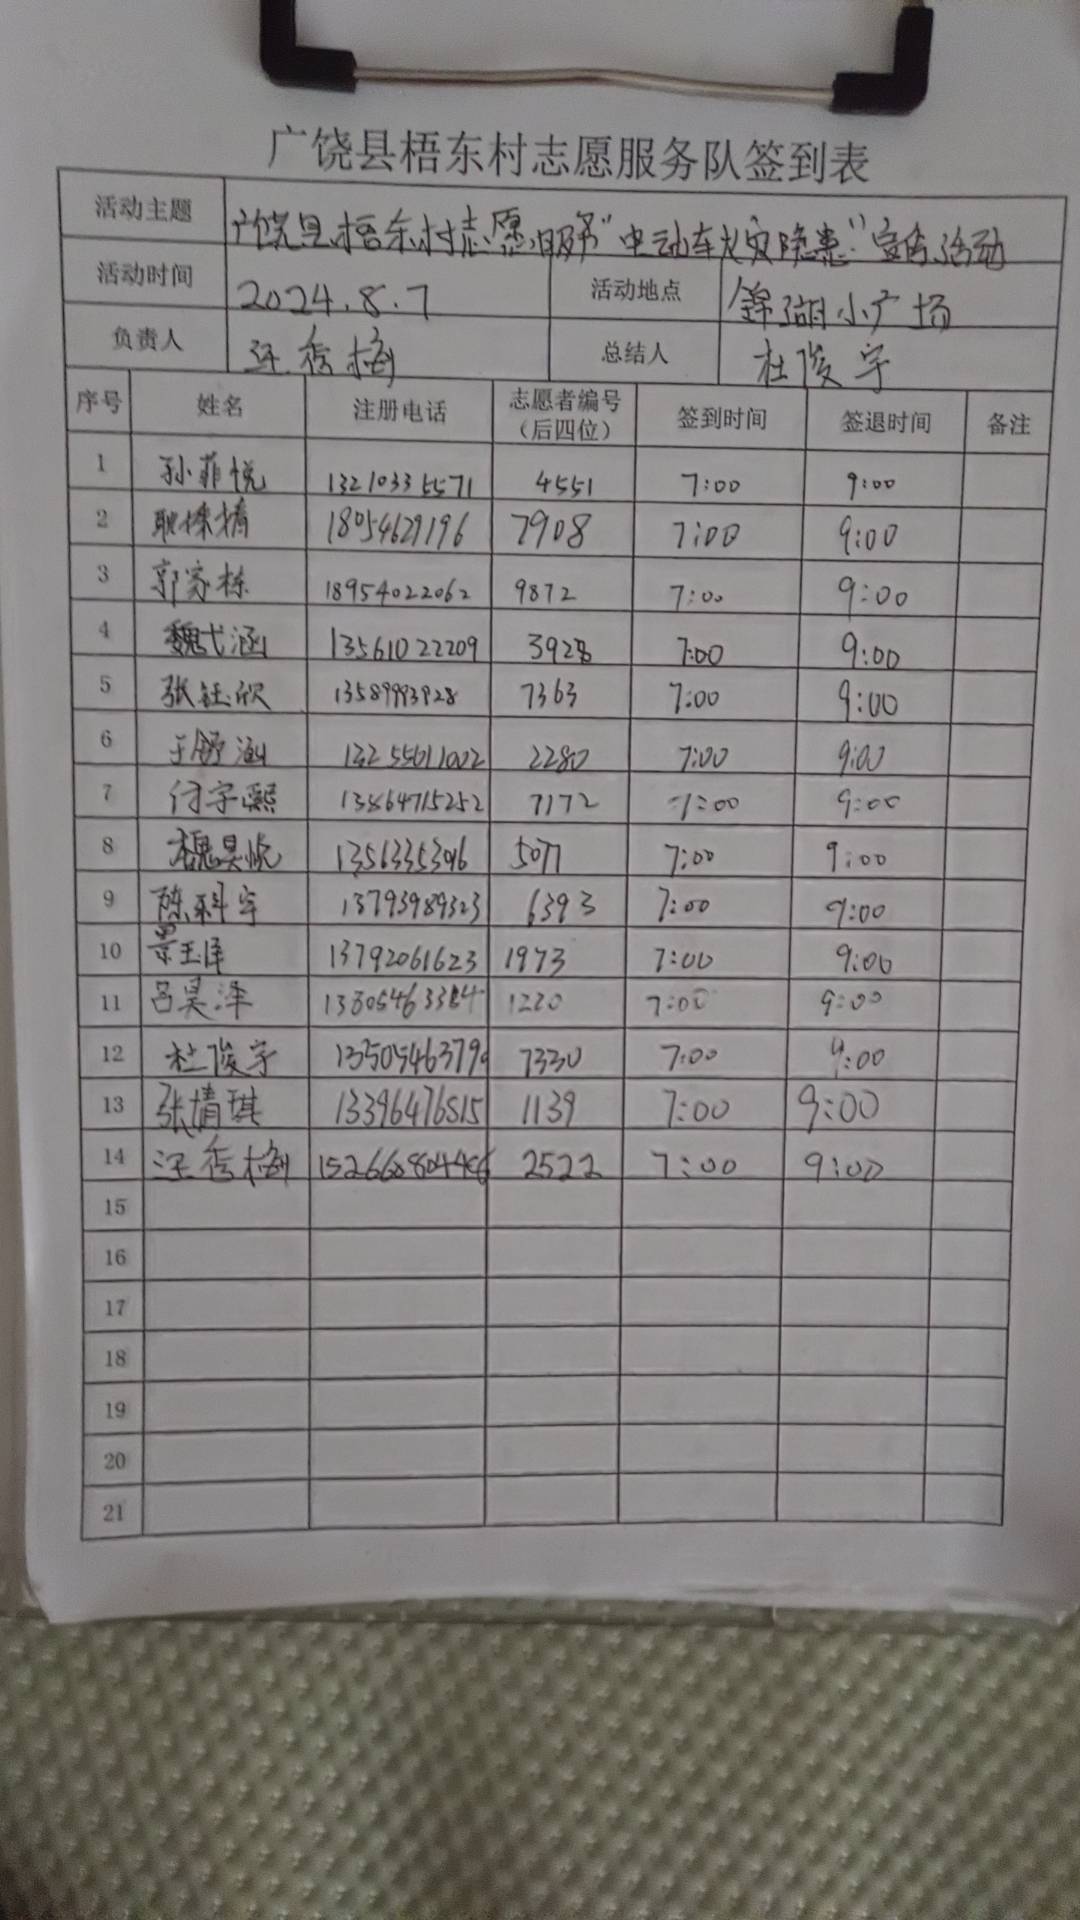 广饶县梧东村志愿服务队签到表
活动主题 广饶县梧东村志愿服务"电动车火灾隐患"宣传活动
活动时间 2024.8.7 活动地点 锦湖小广场
负责人 汪秀梅 总结人 杜俊宇
序号 姓名 注册电话 志愿者编号（后四位） 签到时间 签退时间 备注
1 孙菲悦 13210335571 4551 7:00 9:00
2 18054629196 7908 7:00 9:00
3 郭家栋 18954022062 9872 7:00 9:00
4 魏弋涵 13561022209 3928 7:00 9:00
5 张钰欣 13589993928 7363 7:00 9:00
6 于舒涵 13255611002 2280 7:00 9:00
7 付字熙 13864715252 7172 7:00 9:00
8 魏昊悦 13563353016 5077 7:00 9:00
9 陈科宇 13793989323 6393 7:00 9:00
10 景玉泽 13792061623 1973 7:00 9:00
11 吕昊泽 13805463384 1220 7:00 9:00
12 杜俊宇 7330 7:00 9:00
13 张婧琪 13396476515 1139 7:00 9:00
14 汪秀梅 2522 7:00 9:00
15
16
17
18
19
20
21